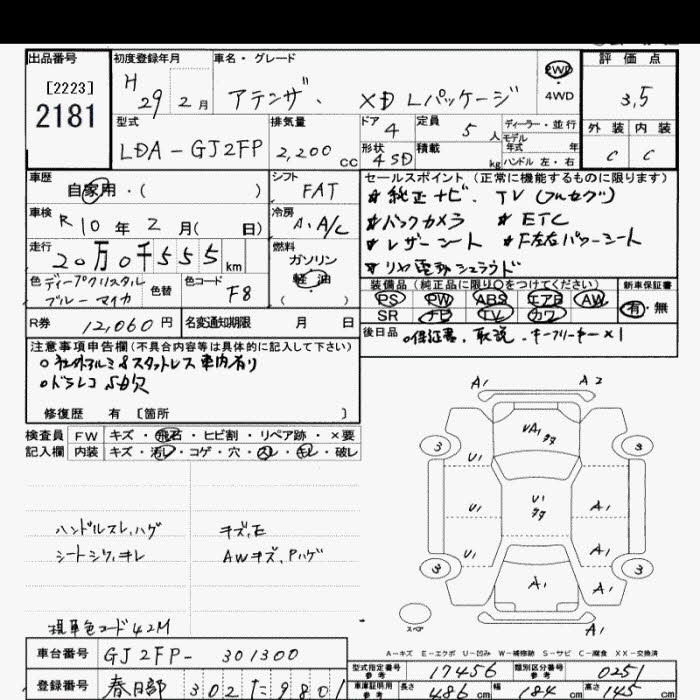 出品番号
[2223]
2181
初度登録年月
H 29 2月
車名・グレード
アテンザ. XD Lパッケージ
2WD
4WD
評価点
3,5
外装 内装
C C
型式
LDA-GJ2FP
排気量
2,200 cc
ドア 4
定員 5 人
ディーラー・並行
モデル年式 年
形状 4SD
積載 kg
ハンドル 左・右
車歴
自家用・( )
シフト
FAT
車検
R 10年 2月( 日)
冷房
A.A/C
走行
20万0千555km
燃料
ガソリン
軽・油
( )
色 ディープクリスタルブルーマイカ
色替
色コード
F8
R券 12,060円
名変通知期限 月 日
セールスポイント(正常に機能するものに限ります)
#純正ナビ. TV(フルセグ)
#バックカメラ #ETC
#レザーシート #F左右パワーシート
#リヤ電動シェラウド
装備品(純正品に限り○をつけてください)
PS PW ABS エアB AW
SR ナビ TV カワ
新車保証書
有・無
後日品
○保証書、取説、キーフリーキー×1
注意事項申告欄(不具合内容等は具体的に記入して下さい)
○社外アルミ&スタットレス車内有り
○ドラレコ
修復歴 有 [箇所 ]
検査員記入欄
FW キズ・飛石・ヒビ割・リペア跡・×要
内装 キズ・汚レ・コゲ・穴・スレ・キレ・破レ
ハンドルスレ,ハゲ
シートシワ,キレ
キズ,E
AWキズ,Pハゲ
現車色コード42M
A1 A2
UA1 タタ
3 3
U1
U1 タタ
U1 A1
U1 A1
3 3
A1 A1
スペア
A1
A-キズ E-エクボ U-凹み W-補修跡 S-サビ C-腐食 XX-交換済
車台番号
GJ2FP- 301300
登録番号
春日部 302 た 9801
型式指定番号
参考
17456
類別区分番号
参考
0251
車庫証明用
参考
長さ 486cm
幅 184cm
高さ 145cm